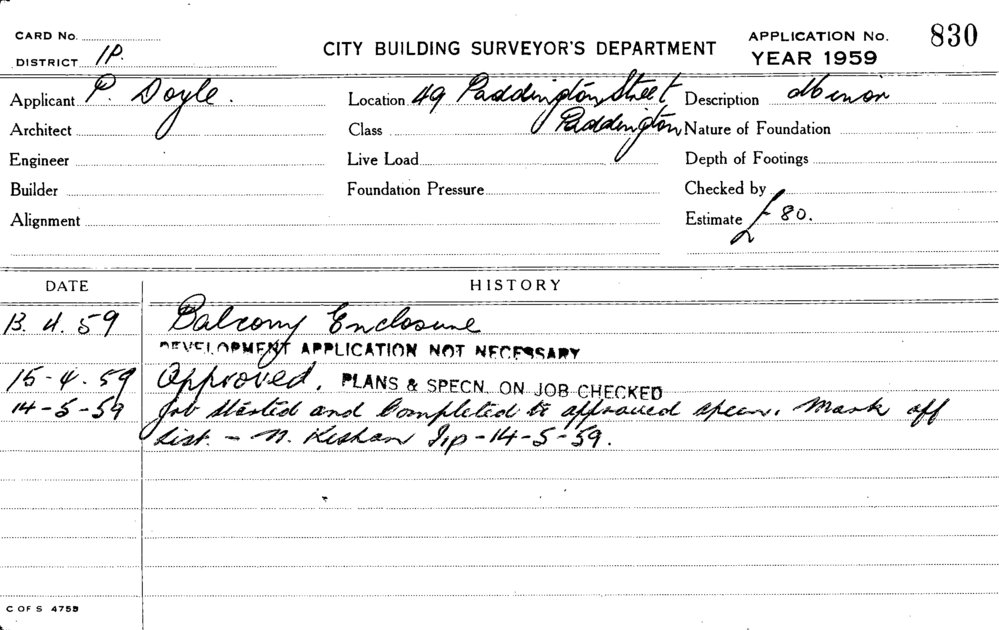 CARD No.
DISTRICT 1P.
CITY BUILDING SURVEYOR'S DEPARTMENT
APPLICATION No. 830
YEAR 1959
Applicant P. Doyle.
Location 49 Paddington Street
Paddington
Description Minor
Architect
Class
Nature of Foundation
Engineer
Live Load
Depth of Footings
Builder
Foundation Pressure
Checked by
Alignment
Estimate £80.
DATE HISTORY
13. 4. 59 Balcony Enclosure
DEVELOPMENT APPLICATION NOT NECESSARY
15-4.59 Approved. PLANS & SPECN. ON JOB CHECKED
14-5-59 Job started and Completed to approved specn. Mark off
List. - N. Keshan 14-5-59.
C OF S 4759